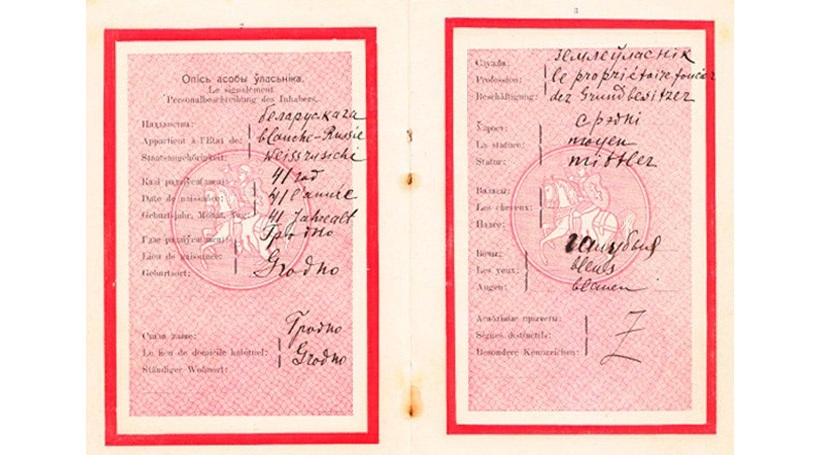 3
Опісь асобы ўласьніка.
Le signalement
Personalbeschreibung des Inhabers.
беларуская
Appartient à l'État de: blanche-Russie
Staatsangehörigkeit: weissruschi
41 год
Date de naissance: 41 l'année
Geburtsjahr, Monat, Tag: 41 Jahrealt
Гродно
Lieu de naissance: Grodno
Geburtsort:
Гродно
Le lieu de domicile habituel: Grodno
Ständiger Wohnort:
Служба: землеўласнік
Profession: le propriétaire foncier
Beschäftigung: der Grundbesitzer
Узрост: срэдні
La stature: moyen
Statur: mittler
Валасы:
Les cheveux:
Haare:
Вочы: галубыя
Les yeux: bleus
Augen: blauen
Асаблівые прыметы:
Signes distinctifs:
Besondere Kennzeichen: Z